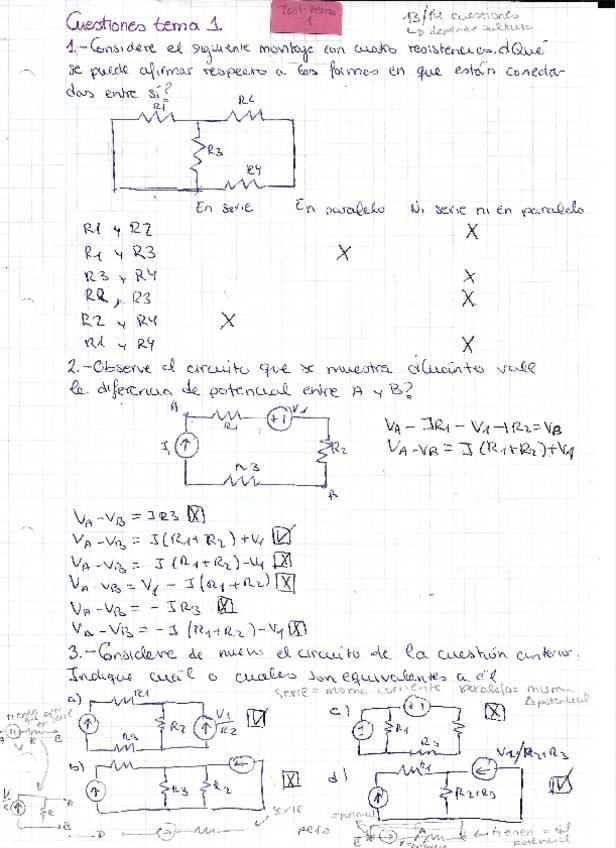 Cuestiones tema 1
Test tema 1
13/14 cuestiones
1.- Considere el siguiente montaje con cuatro resistencias. ¿Qué
se puede afirmar respecto a las formas en que están conecta-
das entre sí?
R1
R2
R3
R4
En serie En paralelo Ni serie ni en paralelo
R1 y R2 X
R1 y R3 X
R3 y R4 X
R2 y R3 X
R2 y R4 X
R1 y R4 X
2.- Observe el circuito que se muestra ¿Cuánto vale
la diferencia de potencial entre A y B?
A
R1
+ -
V1
I
R2
R3
B
VA - IR1 - V1 - IR2 = VB
VA - VB = I(R1+R2)+V1
VA - VB = IR3 X
VA - VB = I(R1+R2)+V1
VA - VB = I(R1+R2)-V1 X
VA - VB = V1 - I(R1+R2) X
VA - VB = -IR3 X
VA - VB = -I(R1+R2)-V1 X
3.- Considere de nuevo el circuito de la cuestión anterior.
Indique cuál o cuales son equivalentes a él
serie = misma corriente paralelo = misma
Δpotencial
a)
R1
R2
V1/R2
R3
c)
R1
R3
X
b)
R3
R2
X
d)
R1
V1/R2+R3
R2+R3
serie
pero
tienen = el
potencial